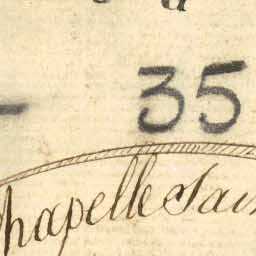 35
Chapelle Sain